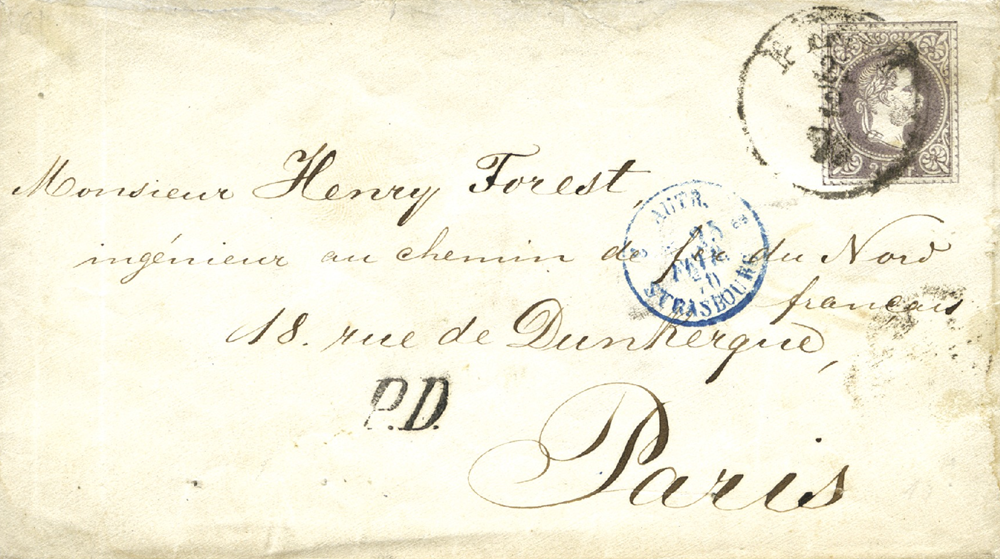 Monsieur Henry Forest,
ingénieur au chemin de fer du Nord
francais
18. rue de Dunkergue,
Paris
P.D.
AUTR.
25
FEVR.
70
STRASBOURG